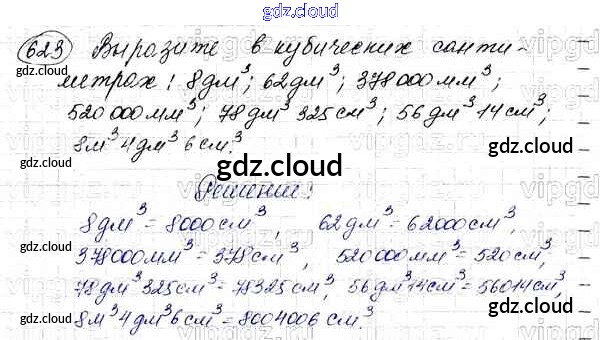 gdz.cloud
623 Выразите в кубических санти-
метрах: 8дм³; 62дм³; 378000мм³;
520000мм³; 78дм³ 325см³; 56дм³ 14см³;
8м³ 4дм³ 6см³.
gdz.cloud
gdz.cloud
gdz.cloud
Решение:
8дм³=8000см³, 62дм³=62000см³,
378000мм³=378см³, 520000мм³=520см³,
78дм³325см³=78325см³, 56дм³14см³=56014см³,
8м³4дм³6см³=8004006см³.
gdz.cloud
gdz.cloud
gdz.cloud